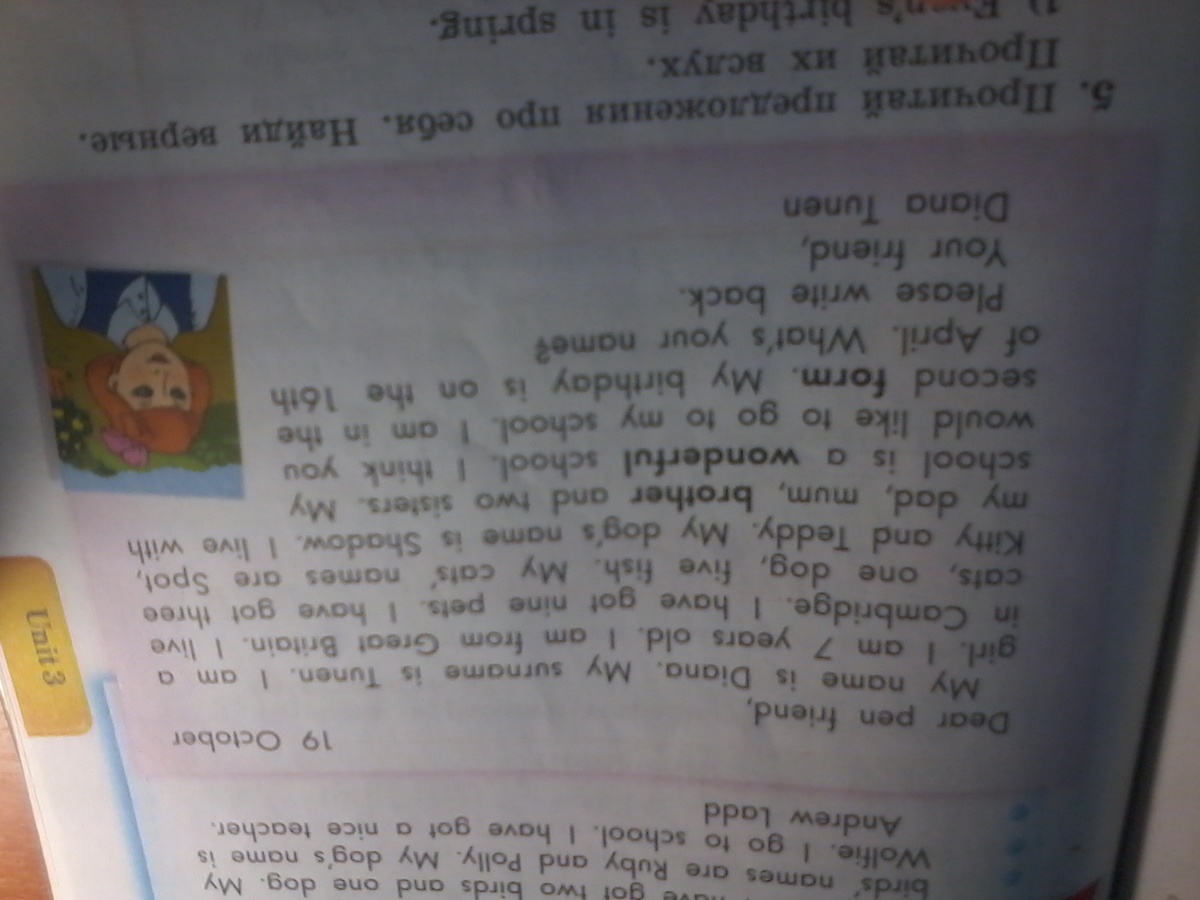 have got two birds and one dog. My
birds' names are Ruby and Polly. My dog's name is
Wolfie. I go to school. I have got a nice teacher.
Andrew Ladd
19 October
Dear pen friend,
My name is Diana. My surname is Tunen. I am a
girl. I am 7 years old. I am from Great Britain. I live
in Cambridge. I have got nine pets. I have got three
cats, one dog, five fish. My cats' names are Spot,
Kitty and Teddy. My dog's name is Shadow. I live with
my dad, mum, brother and two sisters. My
school is a wonderful school. I think you
would like to go to my school. I am in the
second form. My birthday is on the 16th
of April. What's your name?
Please write back.
Your friend,
Diana Tunen
Unit 3
5. Прочитай предложения про себя. Найди верные.
Прочитай их вслух.
1) birthday is in spring.